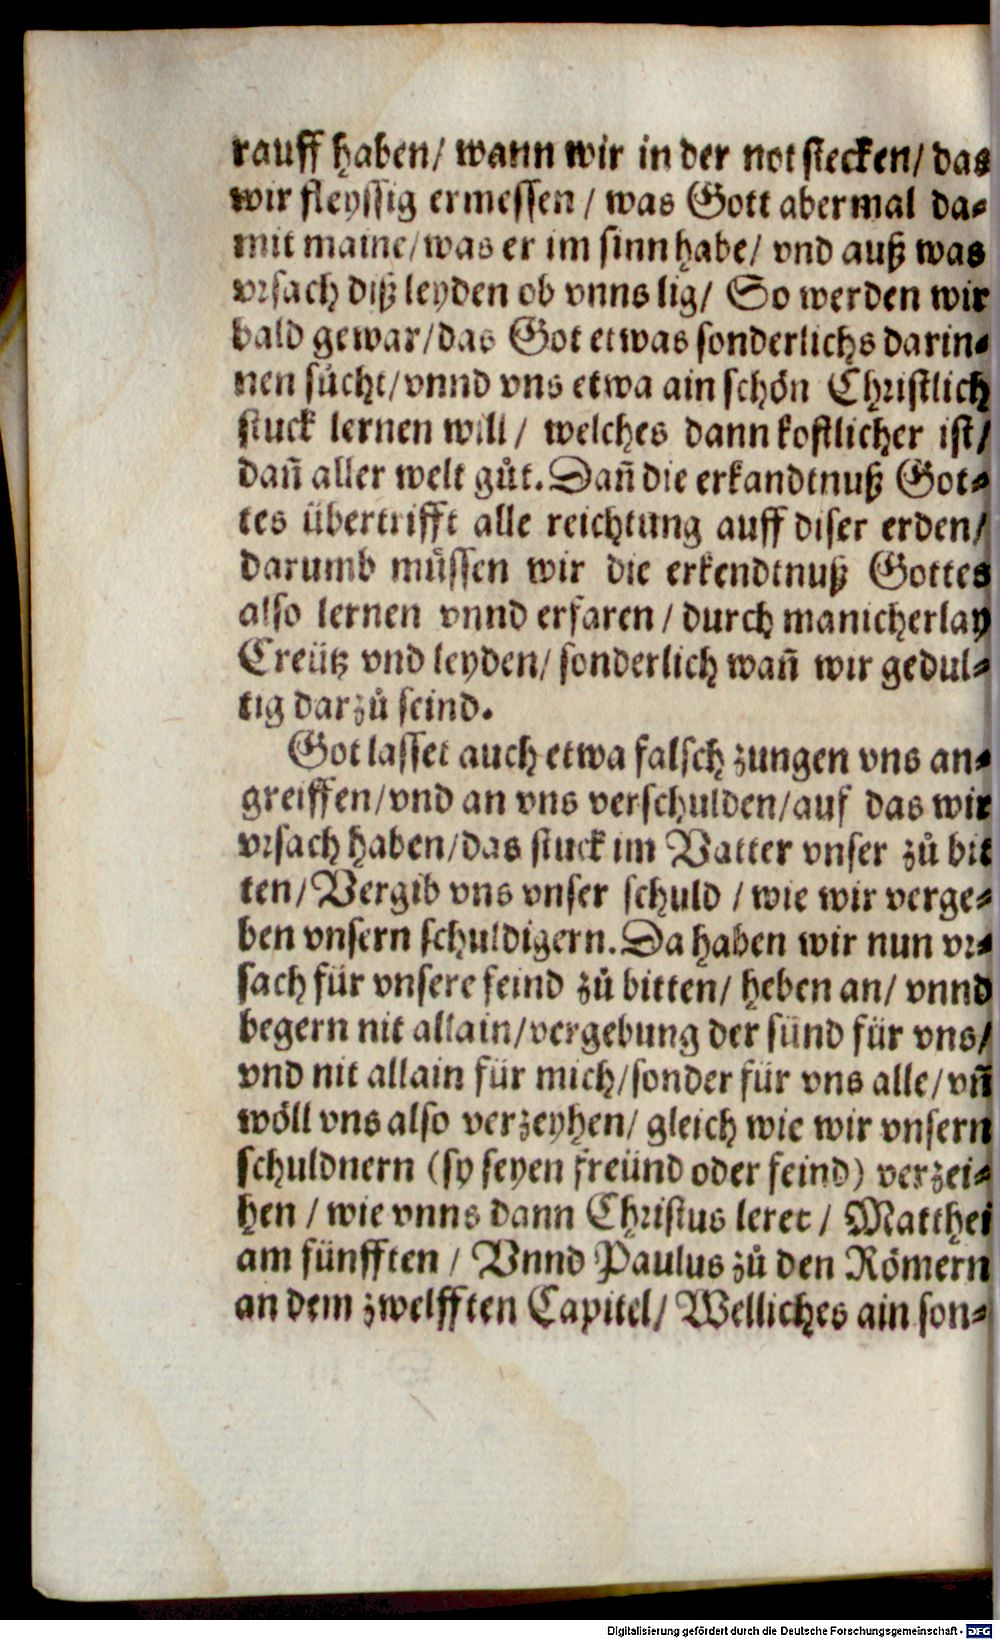 rauff haben/ wann wir in der not stecken/ das
wir fleyssig ermessen / was Gott abermal da-
mit maine/ was er im sinn habe/ vnd auß was
vrsach diß leyden ob vnns lig/ So werden wir
bald gewar/ das Got etwas sonderlichs darin-
nen sůcht/ vnnd vns etwa ain schön Christlich
stuck lernen will / welches dann kostlicher ist/
dañ aller welt gůt. Dañ die erkandtnuß Got-
tes übertrifft alle reichtung auff diser erden/
darumb müssen wir die erkendtnuß Gottes
also lernen vnnd erfaren / durch manicherlay
Creütz vnd leyden/ sonderlich wañ wir gedul-
tig darzů seind.
Got lasset auch etwa falsch zungen vns an-
greiffen/ vnd an vns verschulden/ auf das wir
vrsach haben/ das stuck im Vatter vnser zů bit
ten/ Vergib vns vnser schuld / wie wir verge-
ben vnsern schuldigern. Da haben wir nun vr-
sach für vnsere feind zů bitten/ heben an/ vnnd
begern nit allain/ vergebung der sünd für vns/
vnd nit allain für mich/ sonder für vns alle/ vñ
wöll vns also verzeyhen/ gleich wie wir vnsern
schuldnern (sy seyen freünd oder feind) verzei-
hen / wie vnns dann Christus leret / Matthei
am fünfften / Vnnd Paulus zů den Römern
an dem zwelfften Capitel/ Welliches ain son-
Digitalisierung gefördert durch die Deutsche Forschungsgemeinschaft - DFG